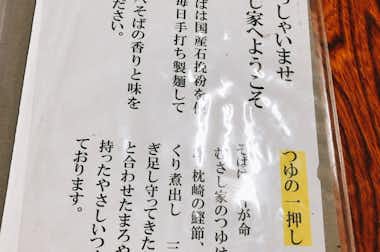 っしゃいませ
し家へようこそ
ばは国産石挽粉を
毎日手打ち製麺して
そばの香りと味を
ださい。
つゆの一押し
そば
が命
むさし家のつゆ
、枕崎の鰹節、
くり煮出し 三
ぎ足し守ってきた
と合わせたまろや
持ったやさしいつ
ております。